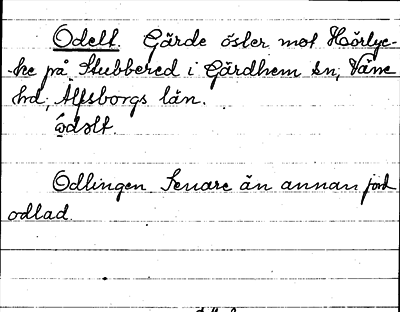 Odelt Gärde öster mot Hörlyc-
-ke på Stubbered i Gärdhem sn, Väne
hd, Älfsborgs län.
Odlingen Senare än annan jord
odlad.